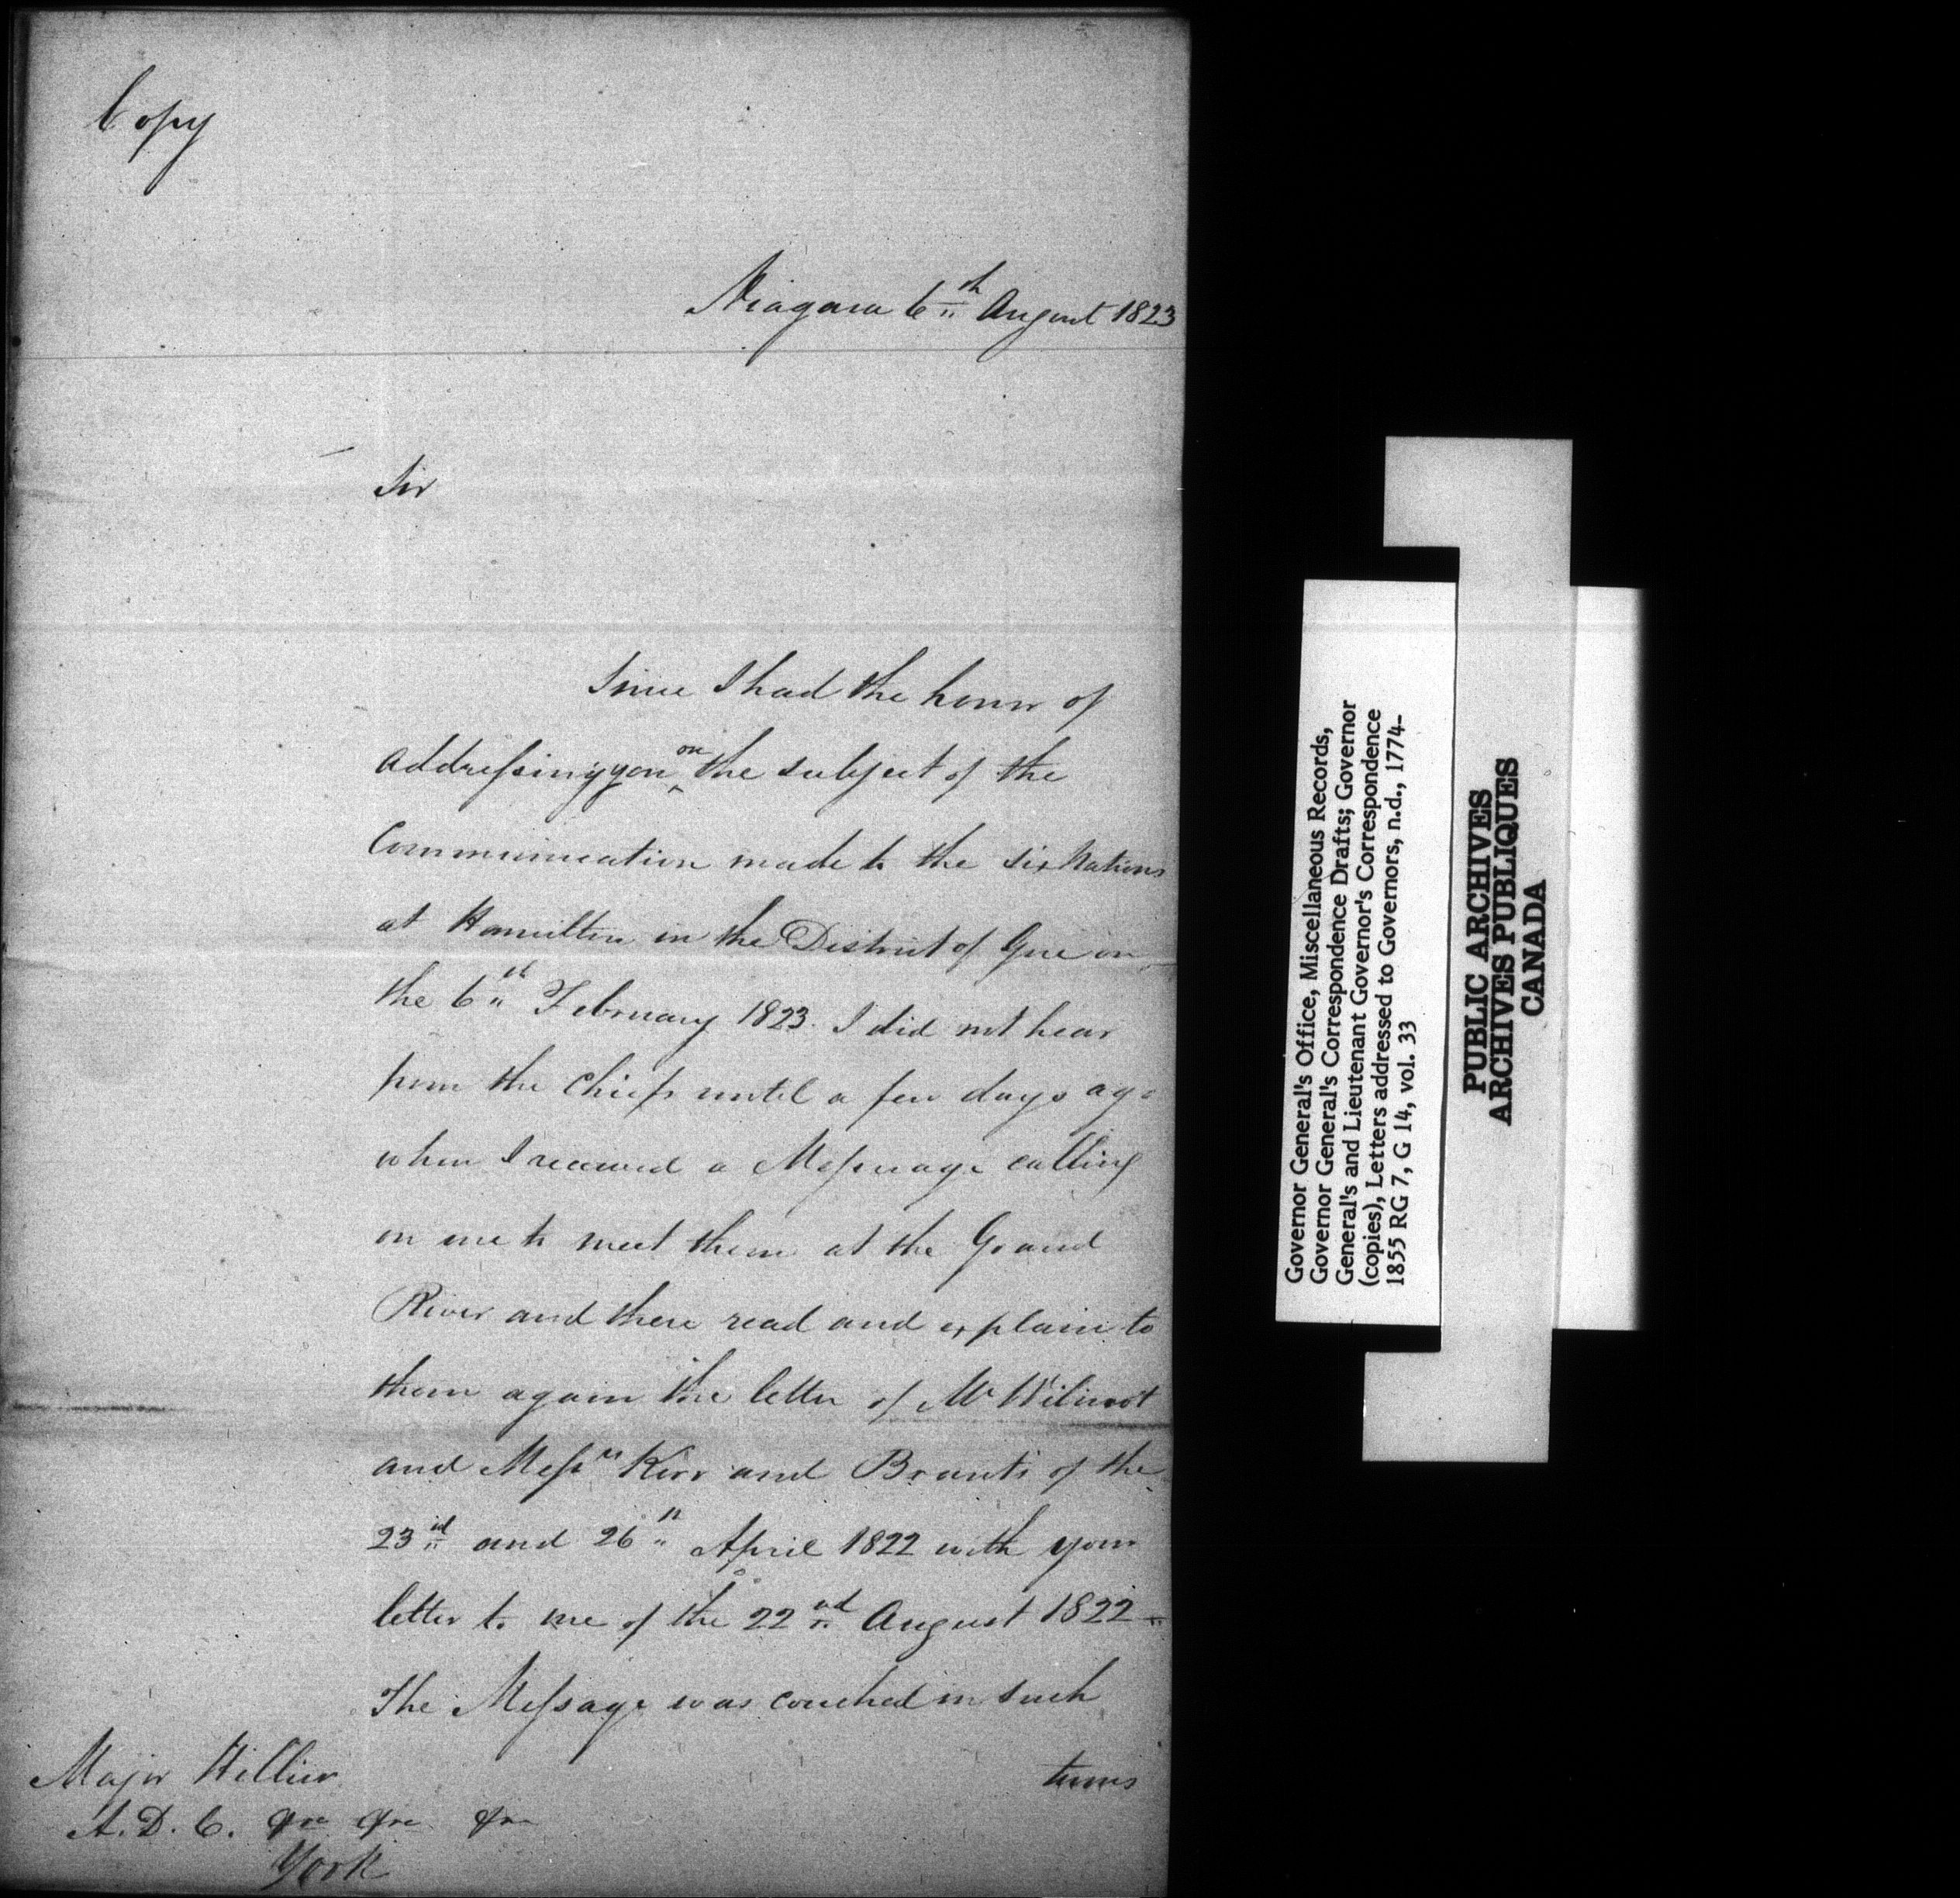 Copy
Niagara 6th August 1823
Sir
Since I had the honor of
addressing you on the subject of the
Communication made to the Six Nations
at Hamilton in the District of Gore on
the 6th February 1823. I did not hear
from the Chiefs until a few days ago
when I received a Message calling
on me to meet them at the Grand
River and there read and explain to
them again the letter of Mr Wilmot
and Messrs Kerr and Brants of the
23rd and 26th April 1822 with your
letter to me of the 22nd August 1822 =
The Message was couched in such
terms
Major Hillier
A. D. C. &c &c &c
York
Governor General's Office, Miscellaneous Records,
Governor General's Correspondence Drafts; Governor
General's and Lieutenant Governor's Correspondence
(copies), Letters addressed to Governors, n.d., 1774-
1855 RG 7, G 14, vol. 33
PUBLIC ARCHIVES
ARCHIVES PUBLIQUES
CANADA